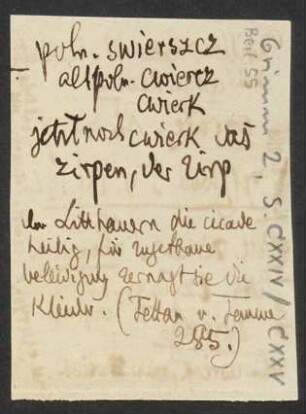 poln. swierszcz
altpoln. cwiercz
cwierk
jetzt noch cwierk das
zirpen, der Zirp
den Litthauern die cicade
heilig, für zugethane
beleidigung zernagt sie die
Kleider. (Tettau u. Temme
285.)
Grimm 2, S. CXXIV/CXXV
Bei/55